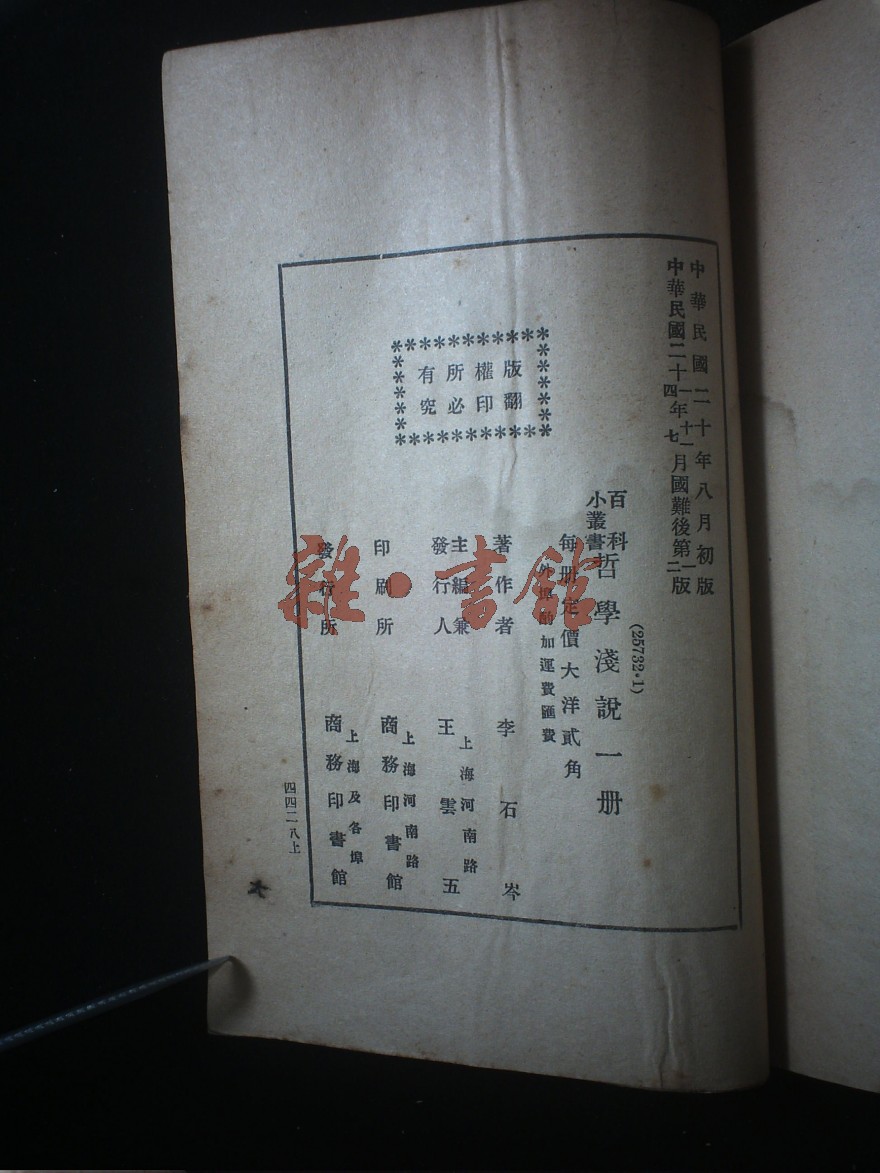 中華民國二十年八月初版
中華民國二十一年十一月國難後第一版
中華民國二十四年七月國難後第二版
(25732·1)
百科小叢書
哲學淺說一册
每册定價大洋貳角
外埠酌加運費匯費
著作者 李石岑
主編兼發行人 王雲五
上海河南路
印刷所 商務印書館
上海河南路
發行所 商務印書館
上海及各埠
版權所有
翻印必究
四四二八上
雜·書館